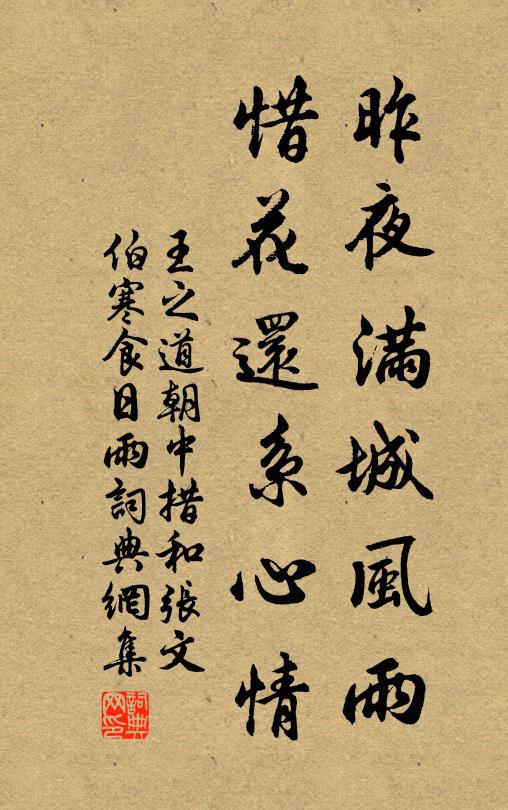 昨夜滿城風雨
惜花還系心情
王之道朝中措和張文
伯寒食日雨詞典網集
詞典
网印